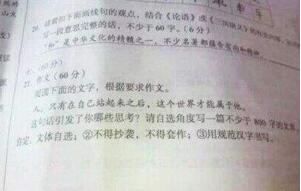 20. 请看下面画线句的观点，结合《论语》或《三国演义》
写一段意思完整的话，不少于60字。(6分)
"和"是中华文化的精髓之一，不少名著都蕴含
七、(60分)
21. 作文(60分)
阅读下面的文字，根据要求作文。
人，只有在自己站起来之后，这个世界才能属于他。
这句话引发了你哪些思考？请自选角度写一篇不少于800字的文章
自定，文体自选；②不得抄袭，不得套作；③用规范汉字书写。